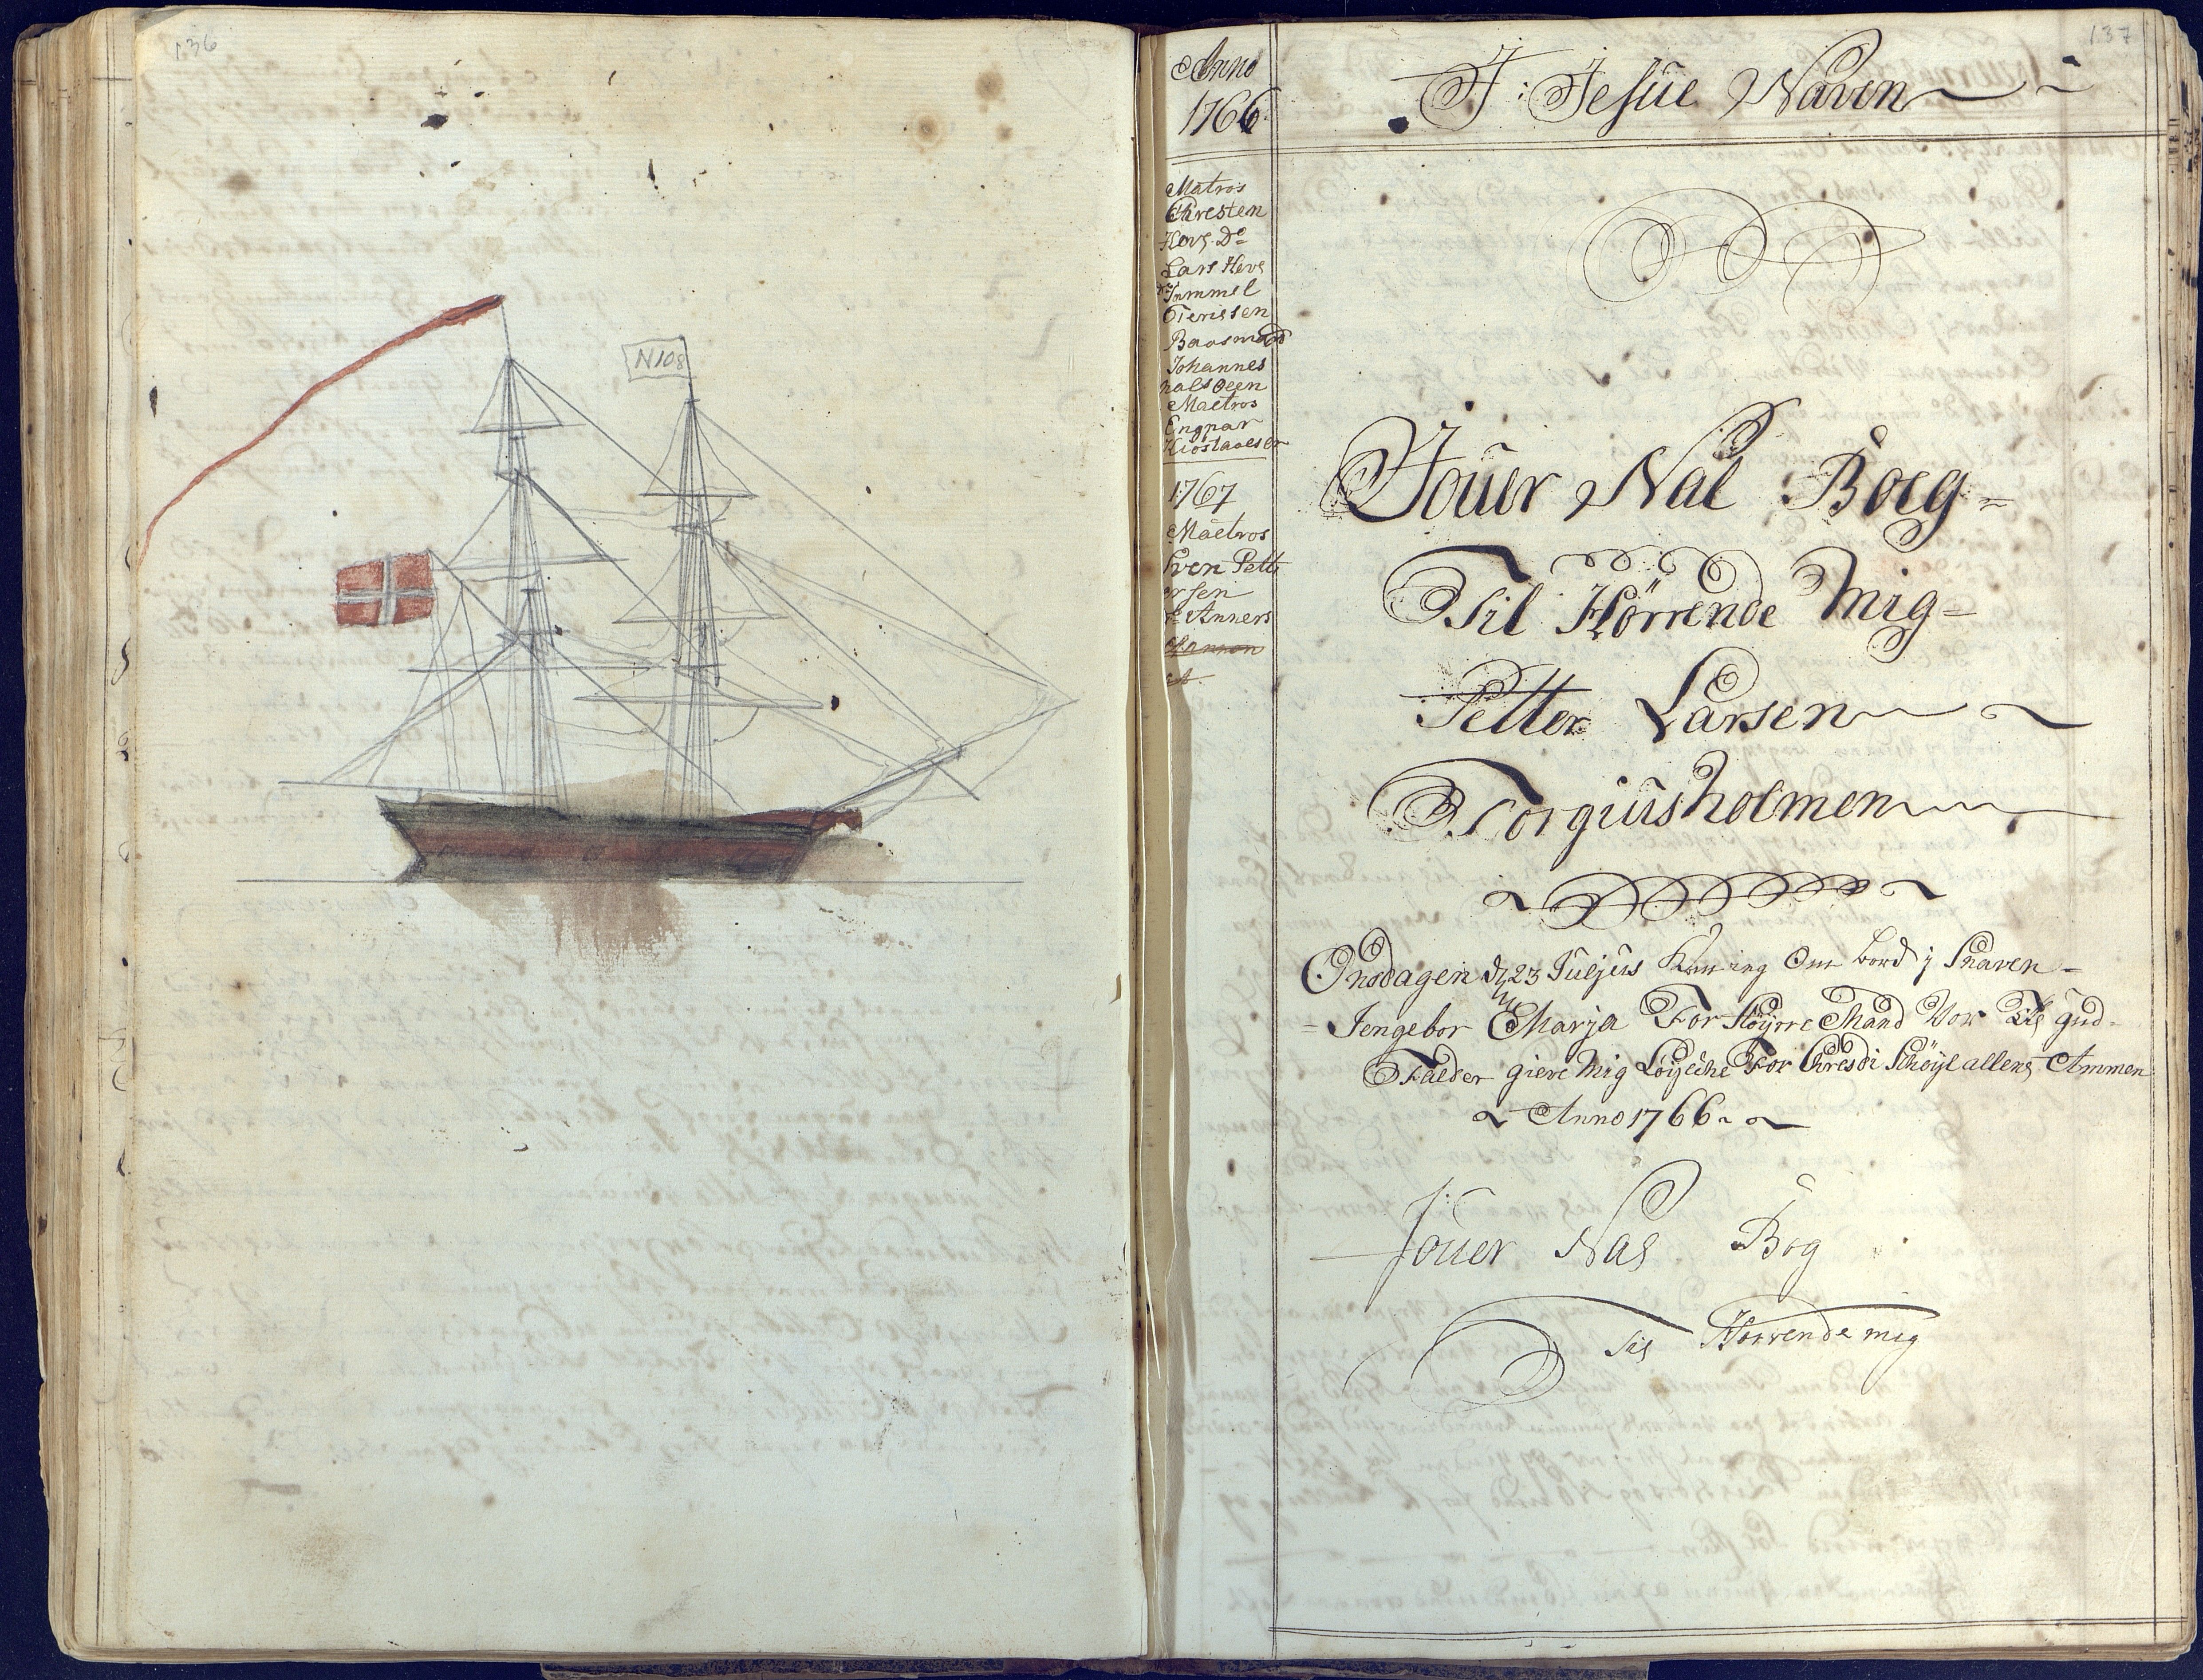 136
N108
137
Anno
1766
J: Jesüe Naven
Matros
Chresten
Hovs Do
Lars Hevs
Jmmel
Terissen
Baasmand
Johannes
nalsoeen
Maetros
Engnar
Kiostaalsen
1767
Maetros
Sven Pett
ersen
Do Anners
Jouer Nal Boeg
Til Hörrende Mig
Petter Larsen
Torgiusholmen
Onsdagen d 23 Juljus Kam ieg Om bord j Snaven
Jengebor Marja For Höyrre Mand Vor gud
Falder give Mig Löycke For Chresdi Schöyl allens Ammen
Anno 1766
Jouer Nal Bog
Til Hörrende mig